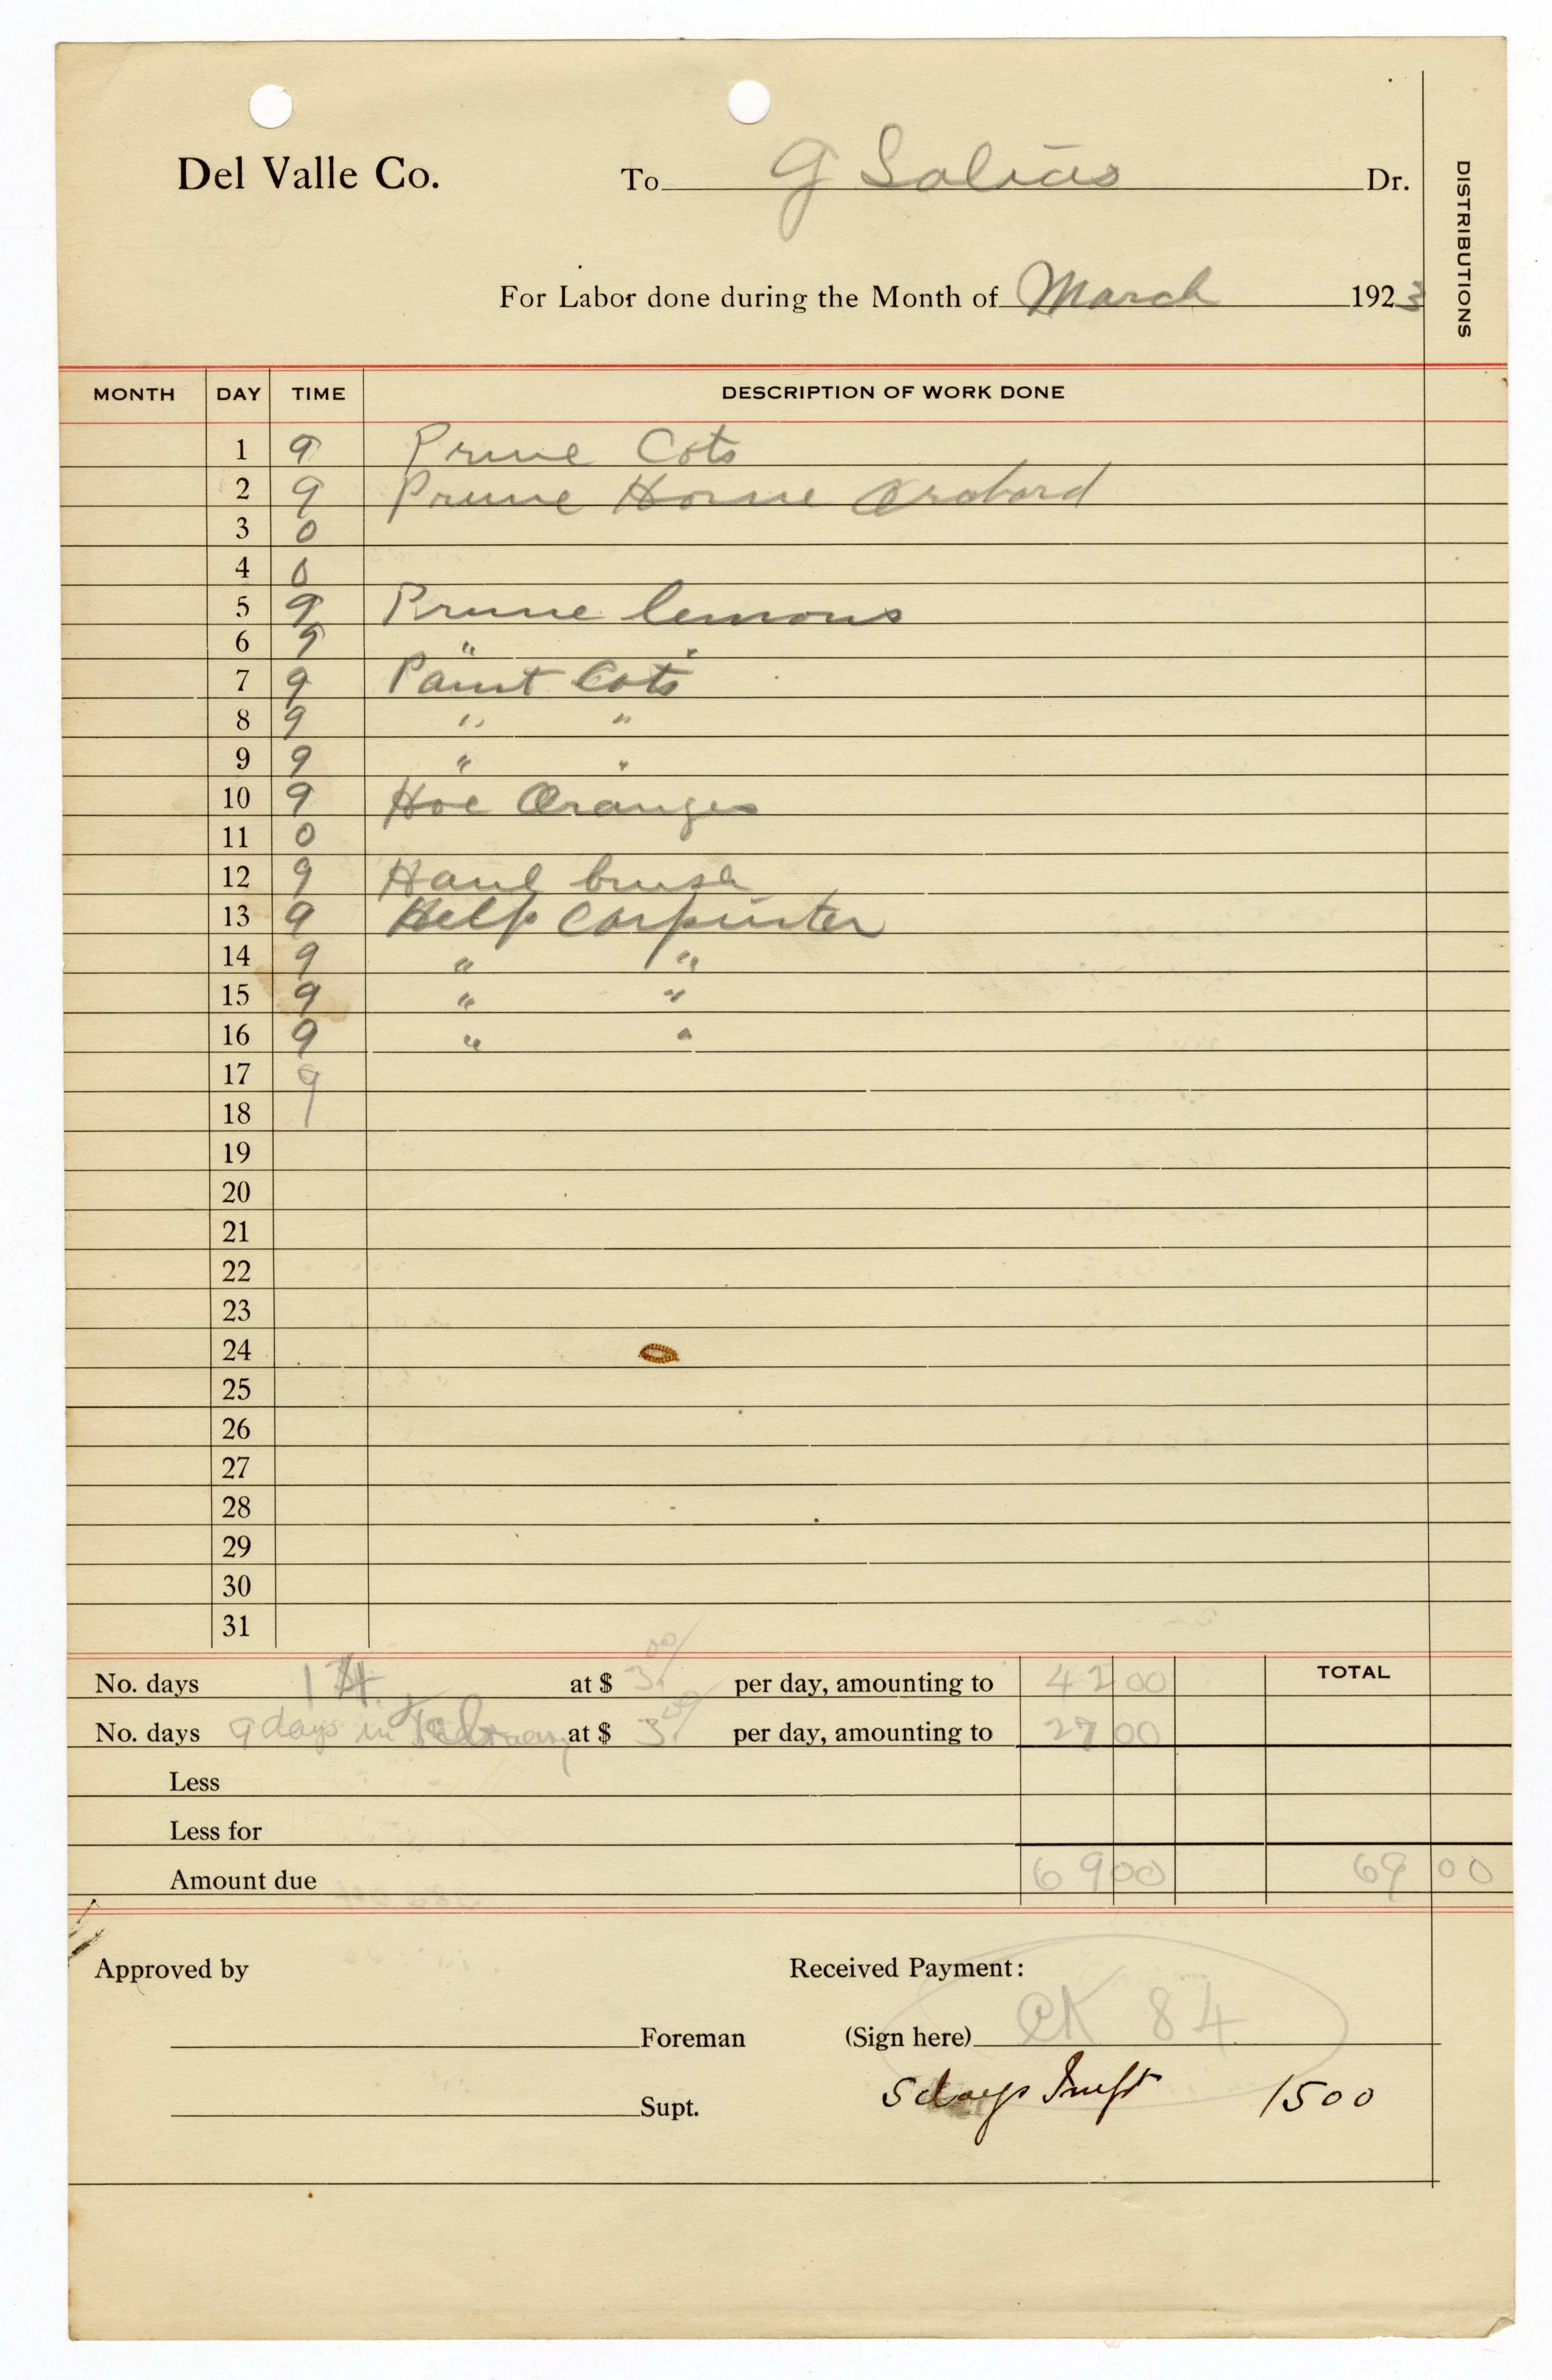 Del Valle Co. To G Salias Dr.
DISTRIBUTIONS
For Labor done during the Month of March 1923
MONTH DAY TIME DESCRIPTION OF WORK DONE
1 9 Prune Cots
2 9 Prune Home Orchard
3 0
4 0
5 9 Prune lemons
6 9 " "
7 9 Paint Cots
8 9 " "
9 9 " "
10 9 Hoe Oranges
11 0
12 9 Haul brush
13 9 Help Carpinter
14 9 " "
15 9 " "
16 9 " "
17 9
18
19
20
21
22
23
24
25
26
27
28
29
30
31
No. days 14 at $ 3.00/ per day, amounting to 42 00 TOTAL
No. days 9 days in February at $ 3.00/ per day, amounting to 27 00
Less
Less for
Amount due 69 00 69 00
Approved by Received Payment:
Foreman (Sign here) CK 84
5 days 1500
Supt.